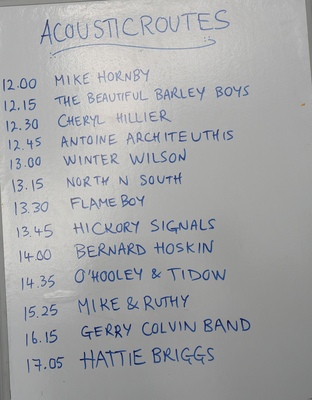 ACOUSTICROUTES
12.00 MIKE HORNBY
12.15 THE BEAUTIFUL BARLEY BOYS
12.30 CHERYL HILLIER
12.45 ANTOINE ARCHITEUTHIS
13.00 WINTER WILSON
13.15 NORTH N SOUTH
13.30 FLAMEBOY
13.45 HICKORY SIGNALS
14.00 BERNARD HOSKIN
14.35 O'HOOLEY & TIDOW
15.25 MIKE & RUTHY
16.15 GERRY COLVIN BAND
17.05 HATTIE BRIGGS